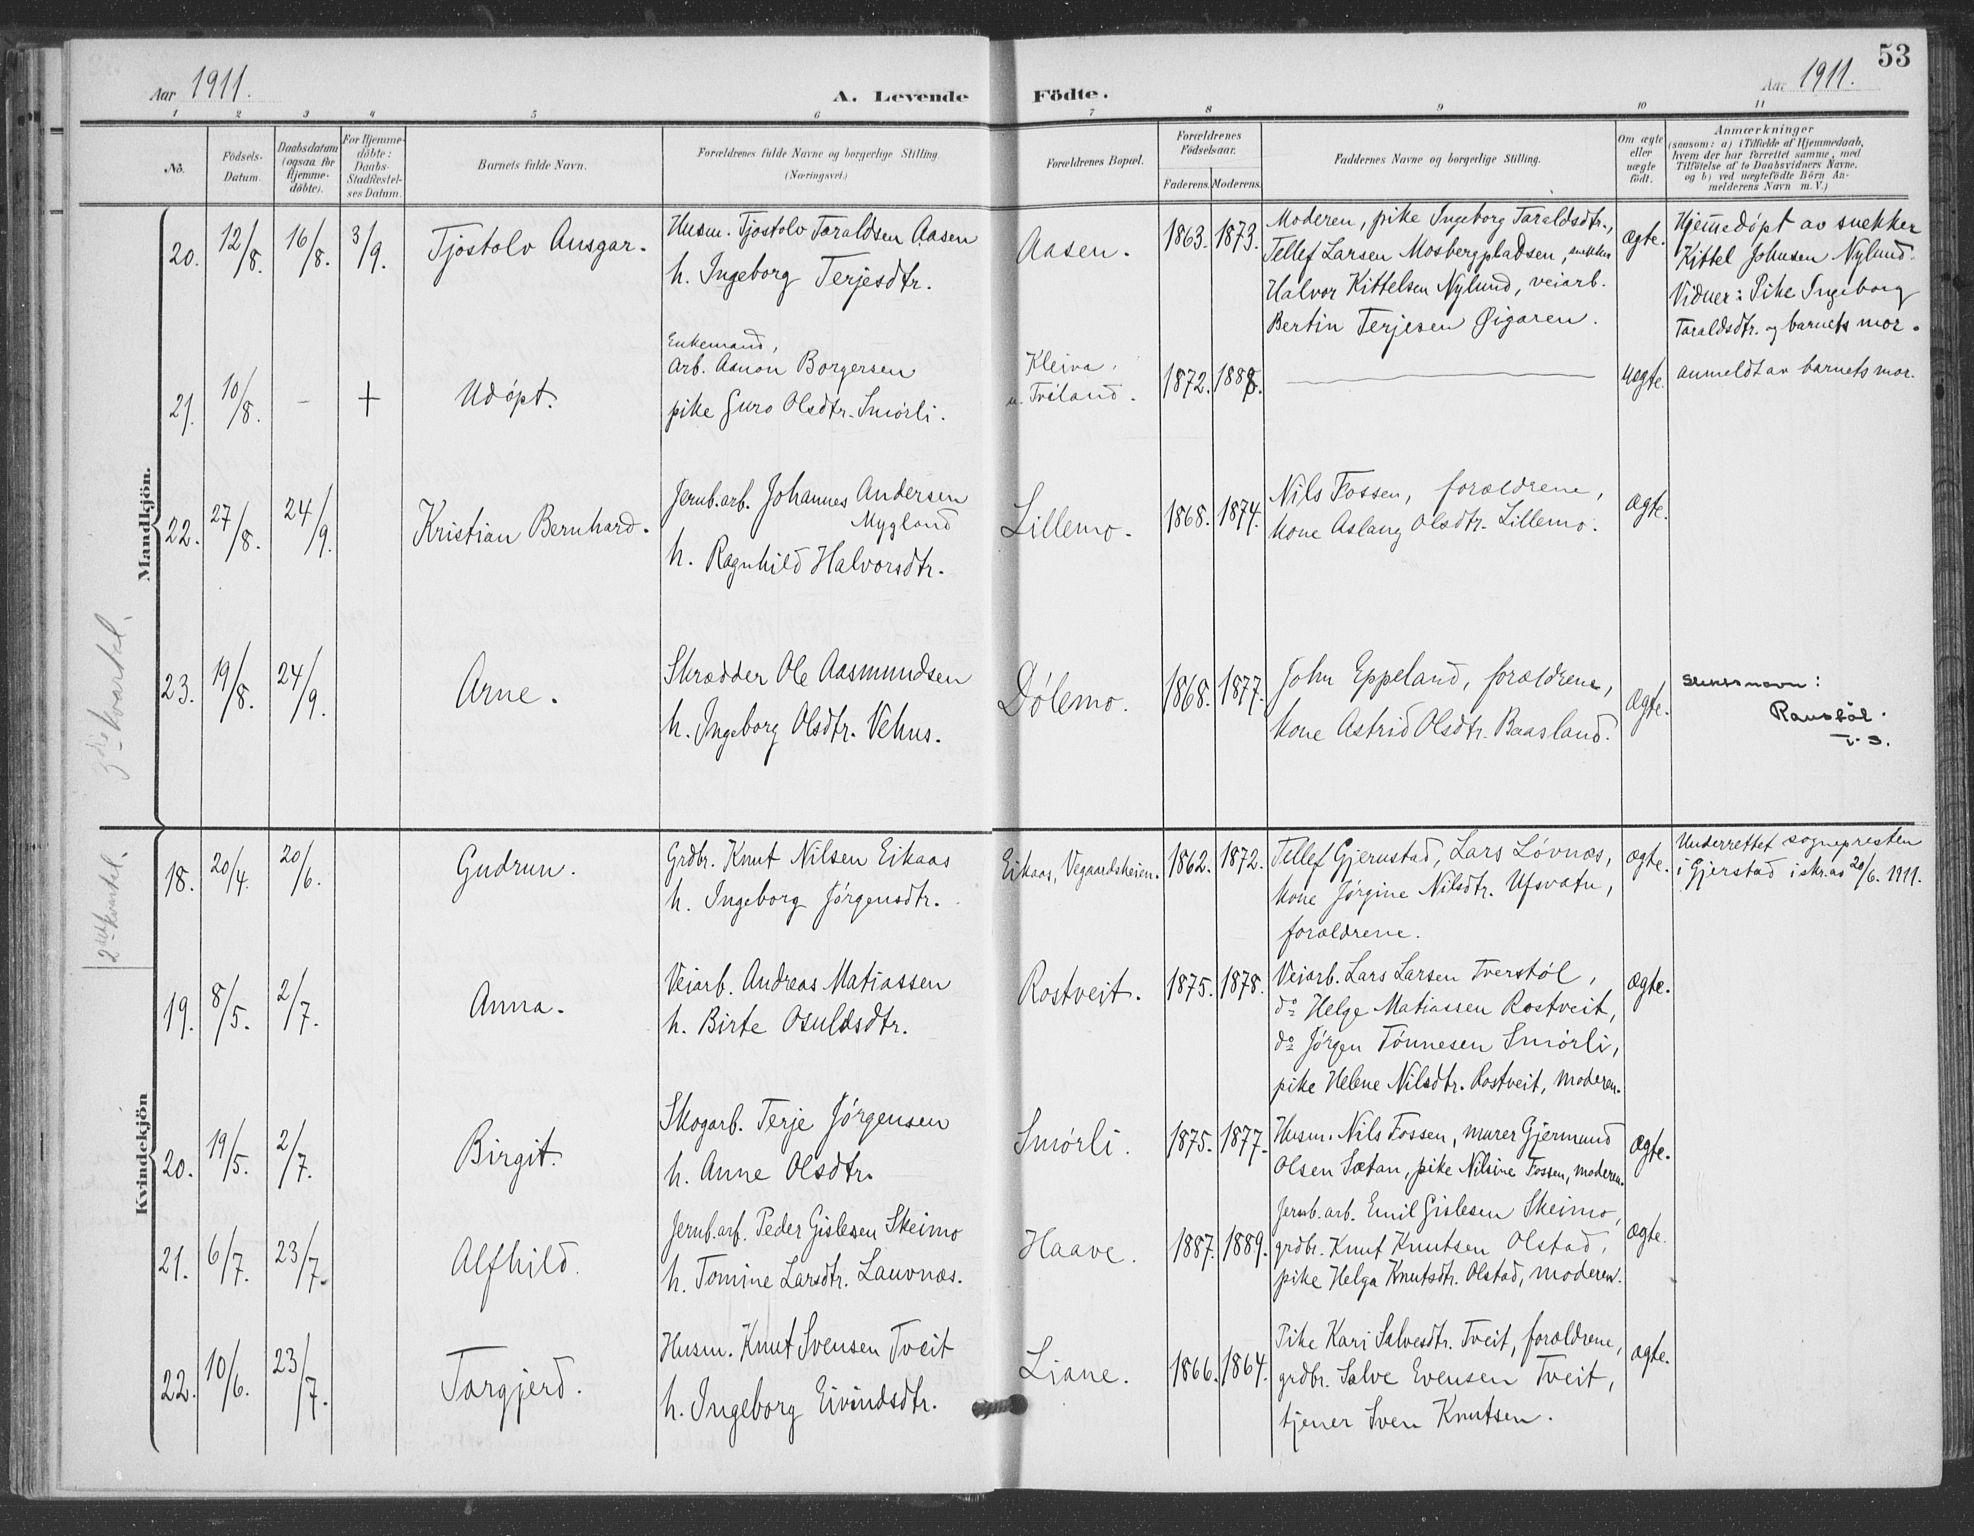 53
Aar 1911.
A. Levende Födte.
Aar 1911.
1 2 3 4 5 6 7 8 9 10 11
No.
Födsels-
Datum.
Daabsdatum
(ogsaa for
Hjemme-
döbte).
For Hjemme-
döbte:
Daabs-
Stadfestel-
ses Datum.
Barnets fulde Navn.
Forældrenes fulde Navne og borgerlige Stilling
(Næringsvei.)
Forældrenes Bopæl.
Forældrenes
Födselsaar.
Faderens. Moderens.
Faddernes Navne og borgerlige Stilling.
Om ægte
eller
uægte
födt.
Anmærkninger
(saasom: a) i Tilfælde af Hjemmedaab,
hvem der har forrettet samme, med
Tilföielse af to Daabsvidners Navne.
og b) ved uægtefödte Börn An-
melderens Navn m. V.)
Mandkjön.
3die kvartal.
20. 12/8. 16/8. 3/9. Tjostolv Ansgar.
Husm. Tjostolv Taraldsen Aasen
h. Ingeborg Terjesdtr.
Aasen. 1863. 1873.
Moderen, pike Ingeborg Taraldsdtr.,
Tellef Larsen Mosbergpladsen, snekker
Halvor Kittelsen Nylund, veiarb.
Bertin Terjesen Øigaren.
Ægte.
Hjemmedøpt av snekker
Kittel Johnsen Nylund.
Vidner: Pike Ingeborg
Taraldsdtr. og barnets mor.
21. 10/8. – + Udøpt.
Enkemand,
Arb. Aanon Borgersen
pike Guro Olsdtr. Smørli.
Kleiva,
u. Tveland.
1872. 1888.
Uægte.
anmeldt av barnets mor.
22. 27/8. 24/9. Kristian Bernhard.
Jernb.arb. Johannes Andersen
Mygland
h. Ragnhild Halvorsdtr.
Lillemo. 1868. 1874.
Nils Fossen, forældrene,
kone Aslaug Olsdtr. Lillemo.
Ægte.
23. 19/8. 24/9. Arne.
Skrædder Ole Aasmundsen
h. Ingeborg Olsdtr. Vehus.
Dølemo. 1868. 1877.
John Eppeland, forældrene,
kone Astrid Olsdtr. Baasland.
Ægte.
Slektsnavn:
Ranstöl.
T. S.
Kvindekjön
2net kvartal.
18. 20/4. 20/6. Gudrun.
Grdbr. Knut Nilsen Eikaas
h. Ingeborg Jørgensdtr.
Eikaas, Vegaardsheien. 1862. 1872.
Tellef Gjerustad, Lars Løvnæs,
kone Jørgine Nilsdtr. Ufsvatn,
forældrene.
Ægte.
Underrettet sognepresten
i Gjerstad i skr. av 20/6. 1911.
19. 8/5. 2/7. Anna.
Veiarb. Andreas Matiassen
h. Birte Osuldsdtr.
Rostveit. 1875. 1878.
Veiarb. Lars Larsen Tverstøl,
do Helge Matiassen Rostveit,
do Jørgen Tønnesen Smørli,
pike Helene Nilsdtr. Rostveit, moderen.
Ægte.
20. 19/5. 2/7. Birgit.
Skogarb. Terje Jørgensen
h. Anne Olsdtr.
Smørli. 1875. 1877.
Husm. Nils Fossen, murer Gjermund
Olsen Sætan, pike Nilsine Fossen, moderen.
Ægte.
21. 6/7. 23/7. Alfhild.
Jernb.arb. Peder Gislesen Skeimo
h. Tomine Larsdtr. Lauvnæs.
Haave. 1887. 1889.
Jernb.arb. Emil Gislesen Skeimo,
grdbr. Knut Knutsen Olstad,
pike Helga Knutsdtr. Olstad, moderen.
Ægte.
22. 10/6. 23/7. Targjerd.
Husm. Knut Svensen Tveit
h. Ingeborg Eivindsdtr.
Liane. 1866. 1864.
Pike Kari Salvesdtr. Tveit, forældrene,
grdbr. Salve Evensen Tveit,
tjener Sven Knutsen.
Ægte.